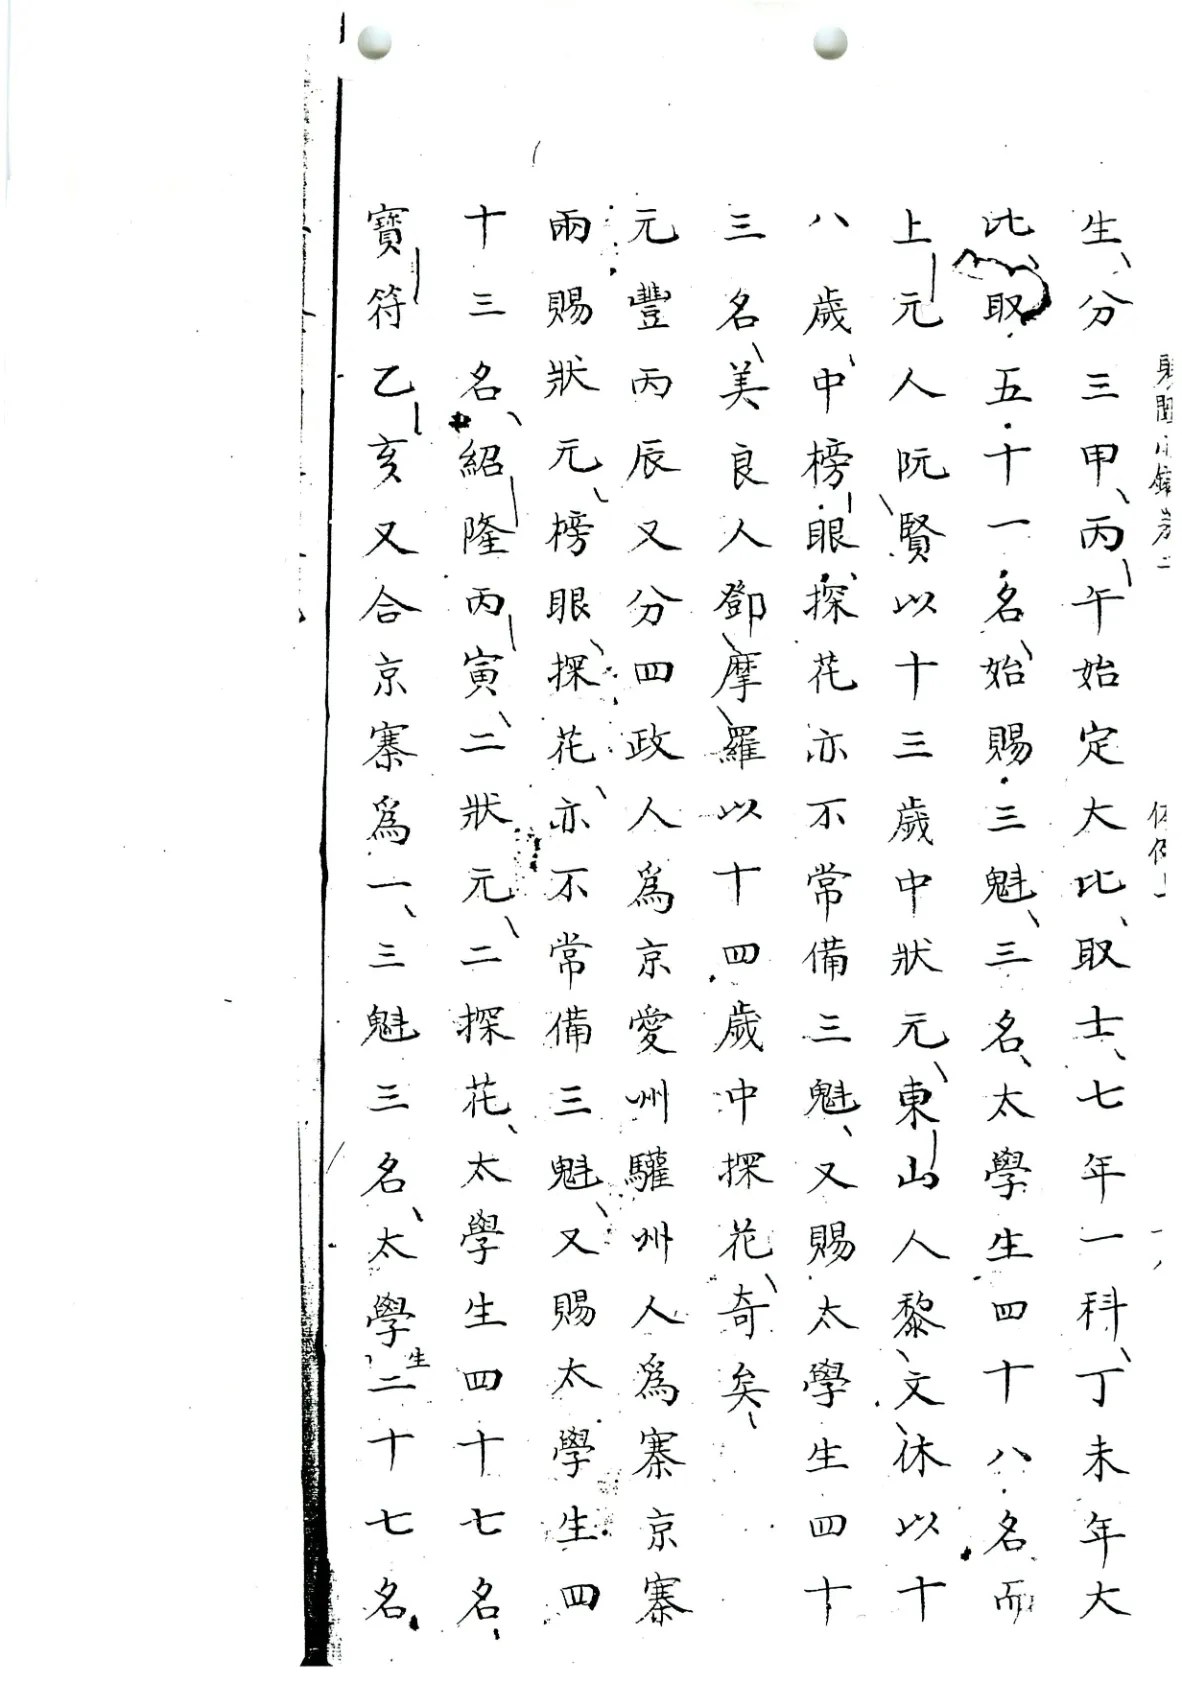 生分三甲丙午始定大比取士七年一科丁未年大
比取五十一名始賜三魁三名太學生四十八名而
上元人阮賢以十三歲中狀元東山人黎文休以十
八歲中榜眼探花亦不常備三魁又賜太學生四十
三名美良人鄧摩羅以十四歲中探花奇矣
元豐丙辰又分四政人為京愛州驩州人為寨京寨
兩賜狀元榜眼探花亦不常備三魁又賜太學生四
十三名紹隆丙寅二狀元二探花太學生四十七名
寶符乙亥又合京寨為一三魁三名太學生二十七名